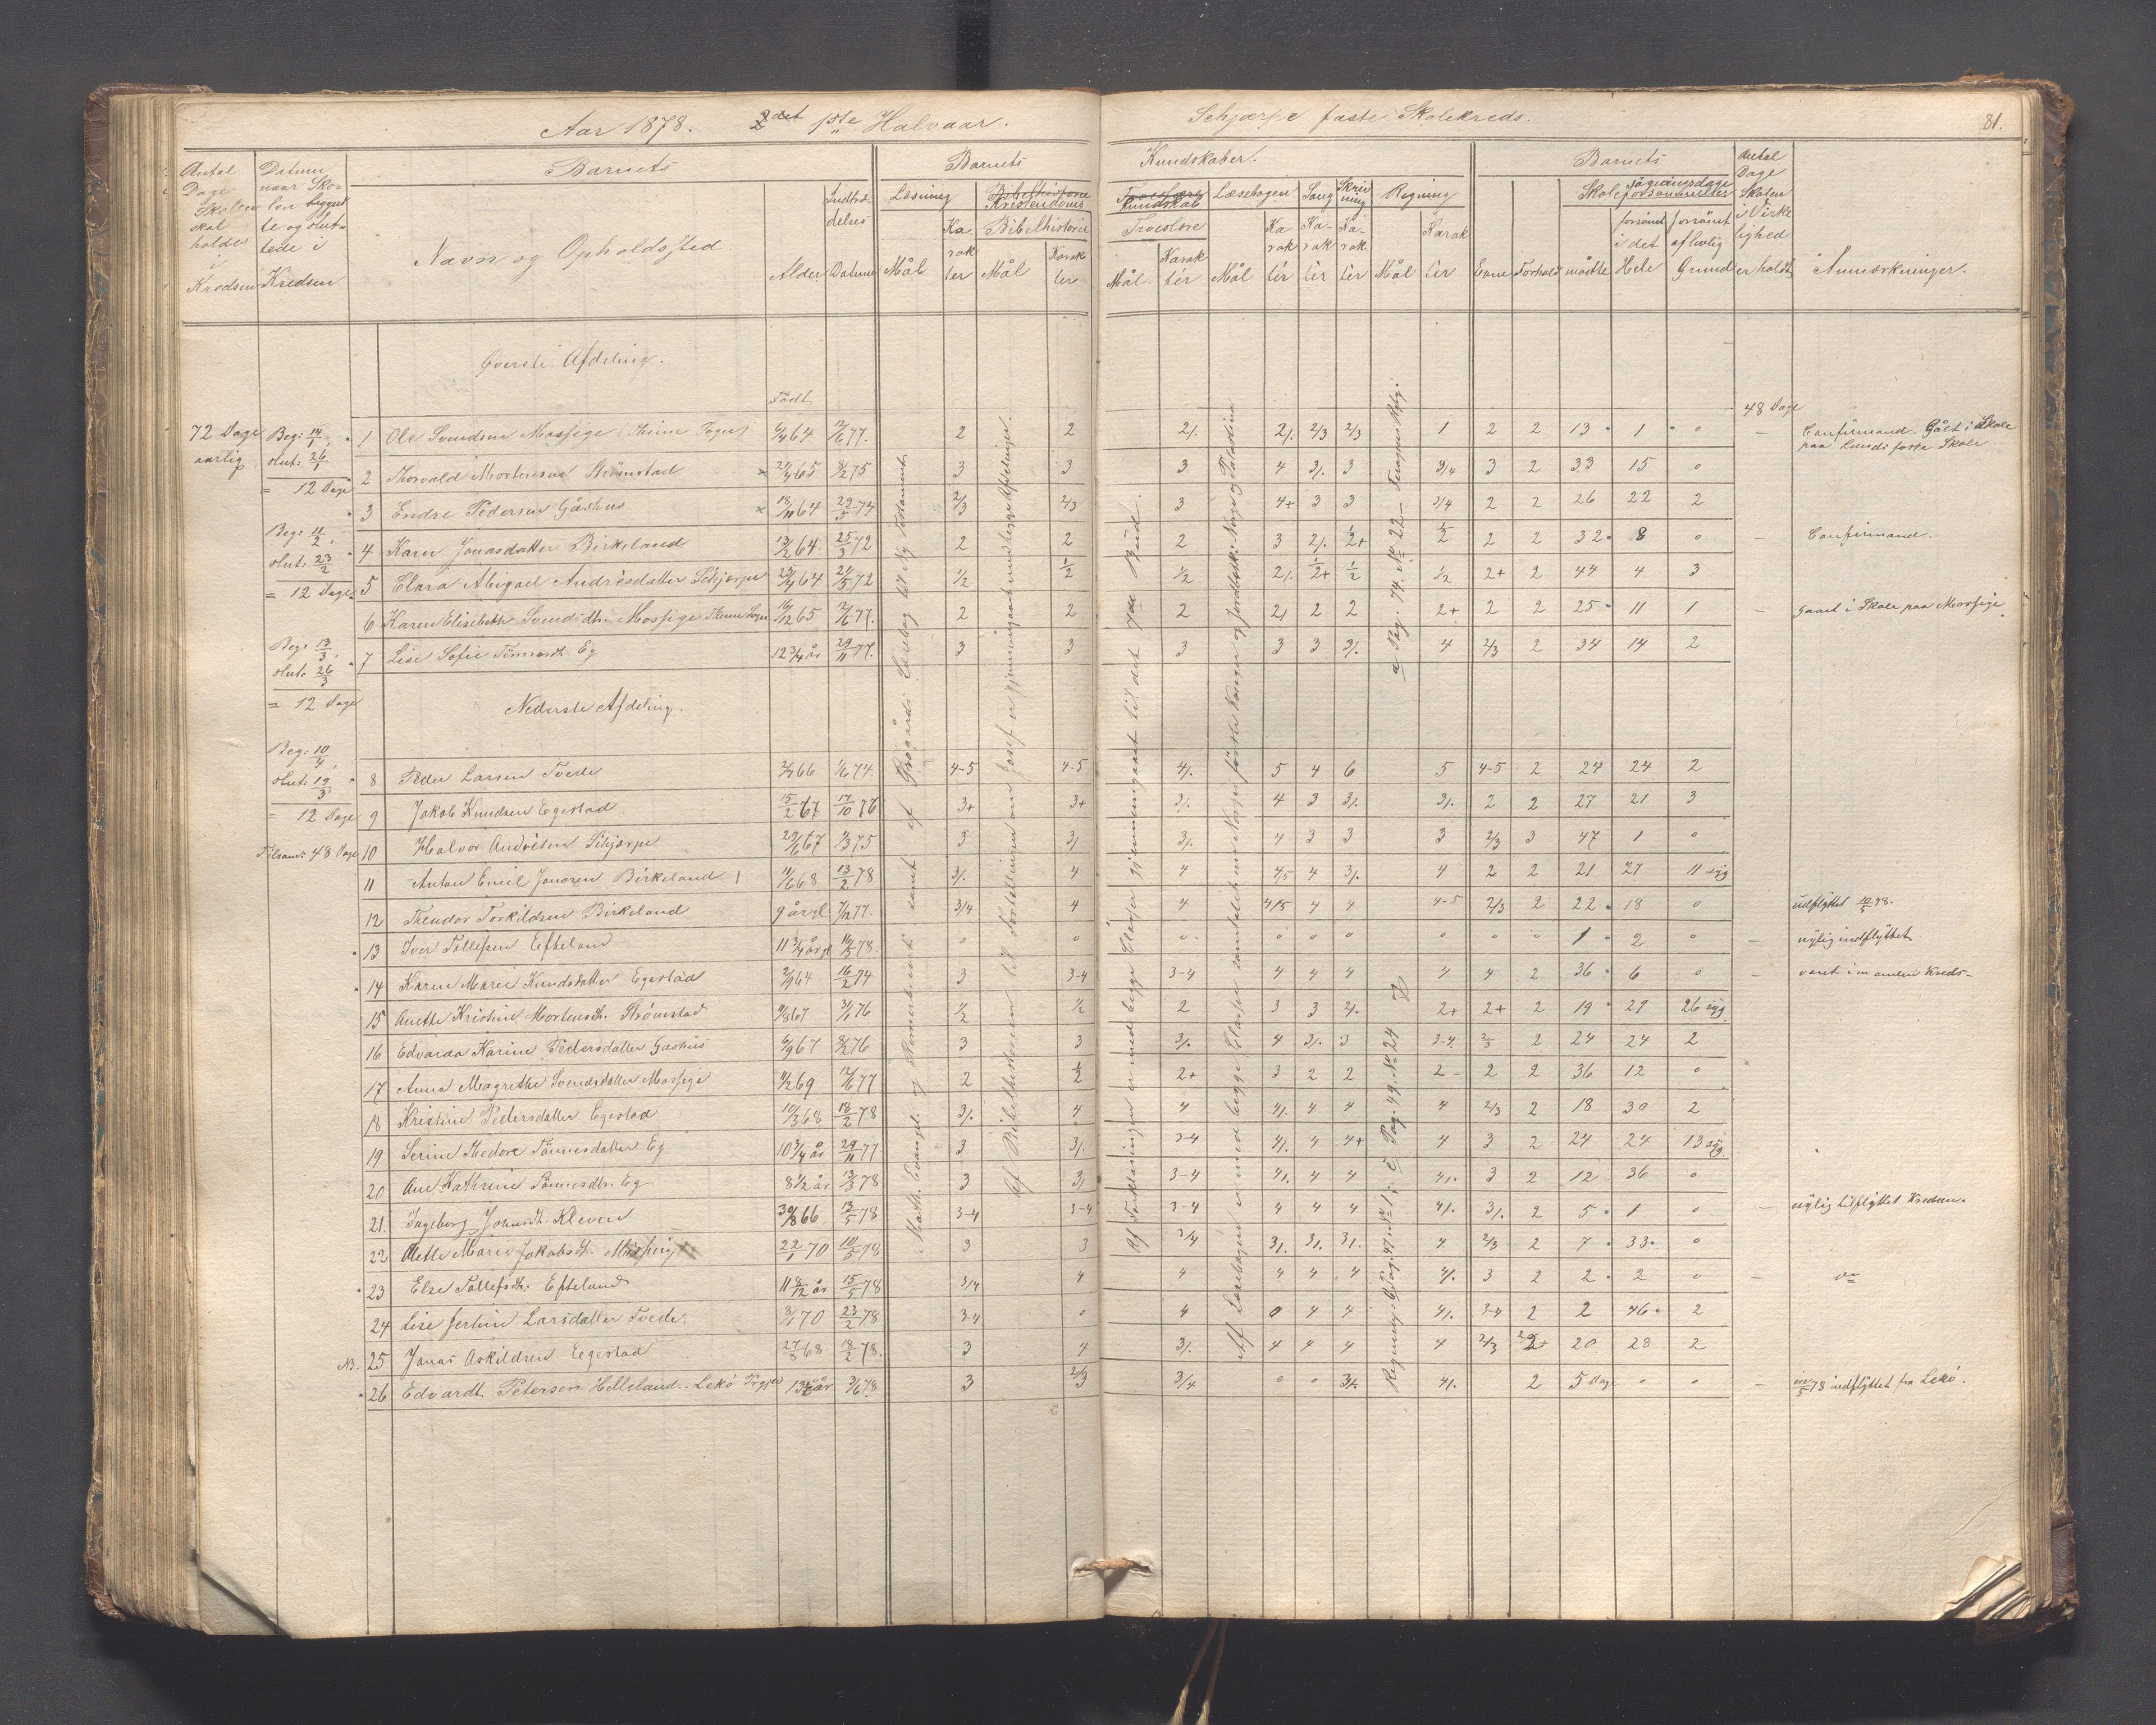 Aar 1878. 2det 1ste Halvaar.
Schjærpe faste Skolekreds.
81.
Antal Dage Skolen skal holdes i Kredsen
Datum naar Skolen begyndte og sluttede i Kredsen
Barnets
Navn og Opholdssted
Alder
Indtrædelses Datum
Barnets
Kundskaber.
Læsning
Mål
Karakter
Kristendoms
Bibelhistorie
Mål
Karakter
Kundskab
Troeslære
Mål
Karakter
Læsebogen
Mål
Karakter
Sang
Karakter
Skrivning
Karakter
Regning
Mål
Karakter
Barnets
Evne
Forhold
Skole
mødte
forsømt i det Hele
forsømt af lovlig Grund
Antal Dage Skolen i Virkelighed er holdt
Anmærkninger.
Øverste Afdeling.
Født
48 Dage
72 Dage aarlig
Beg: 14/1, slut: 26/1
= 12 Dage
Beg: 11/2, slut: 23/2
= 12 Dage
Beg: 13/3, slut: 26/3
= 12 Dage
Beg: 10/4, slut: 19/3
= 12 Dage
Tilsam: 48 Dage
1 Ole Svendsen Mossige 64 77. 2 2 2/. 2/. 2/3 2/3 1 2 2 13 1 0 Confirmand. Gået i Skole paa Lunds faste Skole
2 Thorvald Mortensen Strømstad 65 75 3 3 3 4 3/. 3 3/4 3 2 33 15 0
3 Endre Pedersen Gåshus 18/11 64 29/5 74 2/3 2/3 3 4+ 3 3 3/4 2 2 26 22 2
4 Karen Jonasdatter Birkeland 13/2 64 25/3 72 2 2 2 3 2/. 2+ 1/2 2 2 32 8 0 Confirmand.
5 Clara Abigael Andrèsdatter Schjærpe 64 21/5 72 1/2 1/2 1/2 2/. 1/2+ 1/2 1/2 2+ 2 44 4 3
6 Karen Elisabeth Svendsdtr. Mossige 65 77. 2 2 2 2/ 2 2 2+ 2 2 25 11 1 gaaet i Skole paa Mossige
7 Lise Sofie Tönnesdt. Eg 12 3/4 år 29/11 77. 3 3 3 3 3 3/. 4 2/3 2 34 14 2
Nederste Afdeling.
8 Peder Larsen Tvede 66 74. 4-5 4-5 4/. 5 4 6 5 4-5 2 24 24 2
9 Jakob Knudsen Egestad 15/2 67 17/10 76 3+ 3+ 3/. 4 3 3/. 3/. 2 2 27 21 3
10 Halvor Andrèsen Schjærpe 29/6 67 75 3 3/ 3/. 4 3 3 3 2/3 3 47 1 0
11 Anton Emil Jonasen Birkeland 68 13/2 78 3/. 4 4 4/5 4 3/. 4 2 2 21 27 11 syg
12 Theodor Torkildsen Birkeland 9 år gl 7/12 77. 3/4 4 4 4/5 4 4 4-5 2/3 2 22 18 0 udflyttet 78.
13 Iver Tollefsen Efteland 11 3/4 år gl 78. 0 0 0 0 0 0 0 0 0 1 2 0 nylig indflyttet
14 Karen Marie Knudsdatter Egestad 64 16/2 74 3 3-4 3-4 4 4 4 4 4 2 36 6 0 været i en anden Kreds
15 Anette Kristine Mortensdt. Strømstad 67 76 1/2 1/2 2 3 3 2/. 2+ 2+ 2 19 29 26 syg
16 Edvarda Karine Pedersdatter Gåshus 67 76 3 3 3/. 4 3/. 3 3-4 2/3 2 24 24 2
17 Anna Magrethe Svendsdatter Mossige 69 77 2 1/2 2+ 3 2 2 2 2 2 36 12 0
18 Kristine Pedersdatter Egestad 10/3 68 18/2 78 3/. 4 4 4/. 4 4 4 2/3 2 18 30 2
19 Serine Thedore Tönnesdatter Eg 10 3/4 år 29/11 77 3 3/. 3-4 4/. 4 4+ 4 3 2 24 24 13 syg
20 Ane Kathrine Tönnesdtr. Eg 8 1/2 år 13/3 78 3 3/ 3-4 4/. 4 4 4/. 3 2 12 36 0
21. Ingeborg Johnsdt. Kleven 30/8 66 13/5 78 3-4 3-4 3-4 4 4 4 4/. 3/. 2 5 1 0 nylig tilflyttet Kredsen.
22 Mette Marie Jakobsdt. Mossige 22/1 70 10/5 78 3 3 3/4 3/. 3/. 3/. 4 2/3 2 7 33 0
23 Else Tollefsdt. Efteland 11 8/12 år 15/5 78 3/4 4 4 4 4 4 4/. 3 2 2 2 0 do
24 Lise Jertine Larsdatter Tvede. 8/1 70 23/2 78 3-4 0 4 0 4 4 4/. 3-4 2 2 46 2
NB. 25 Jonas Askildsen Egestad 27/8 68 18/2 78. 3 4 3/. 4 4 4 4 2/3 2+ 20 28 2
26 Edvardt Petersen Helleland. Lekö 78 3 2/3 3/4 0 0 3/. 4/. 2 5 Dage 0 0 78 indflyttet fra Lekö.
Math. Evangl. og Romerbrevet samt af Læsebog til Ny Testament
Af Bibelhistorien til Fortellingen om Josef er gjennemgaaet med begge Afdelinger.
Af Forklaringen er med begge Classer gjennemgaaet til det 7de Bud.
Af Læsebogen er med begge Classer samtalet om Norges første Konger og Jordbesk: Norge og Palæstina
Regning: Pag. 47. No 1; c Pag. 49. No 24
a Pag. 74. No 22